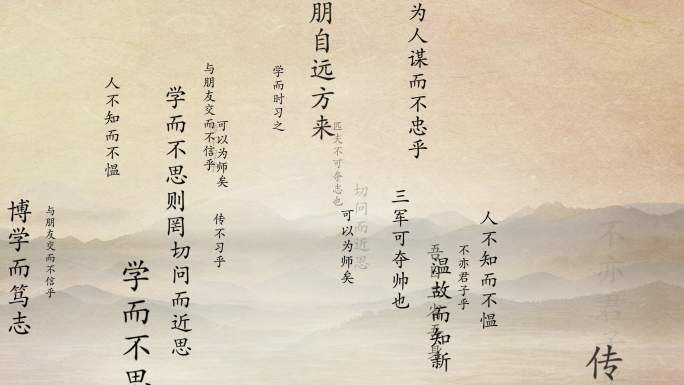 不亦君
传
人不知而不愠
不亦君子乎
温故而知新
为人谋而不忠乎
三军可夺帅也
切问而近思
可以为师矣
匹夫不可夺志也
朋自远方来
学而时习之
可以为师矣
传不习乎
与朋友交而不信乎
学而不思则罔
切问而近思
学而不思
人不知而不愠
与朋友交而不信乎
博学而笃志